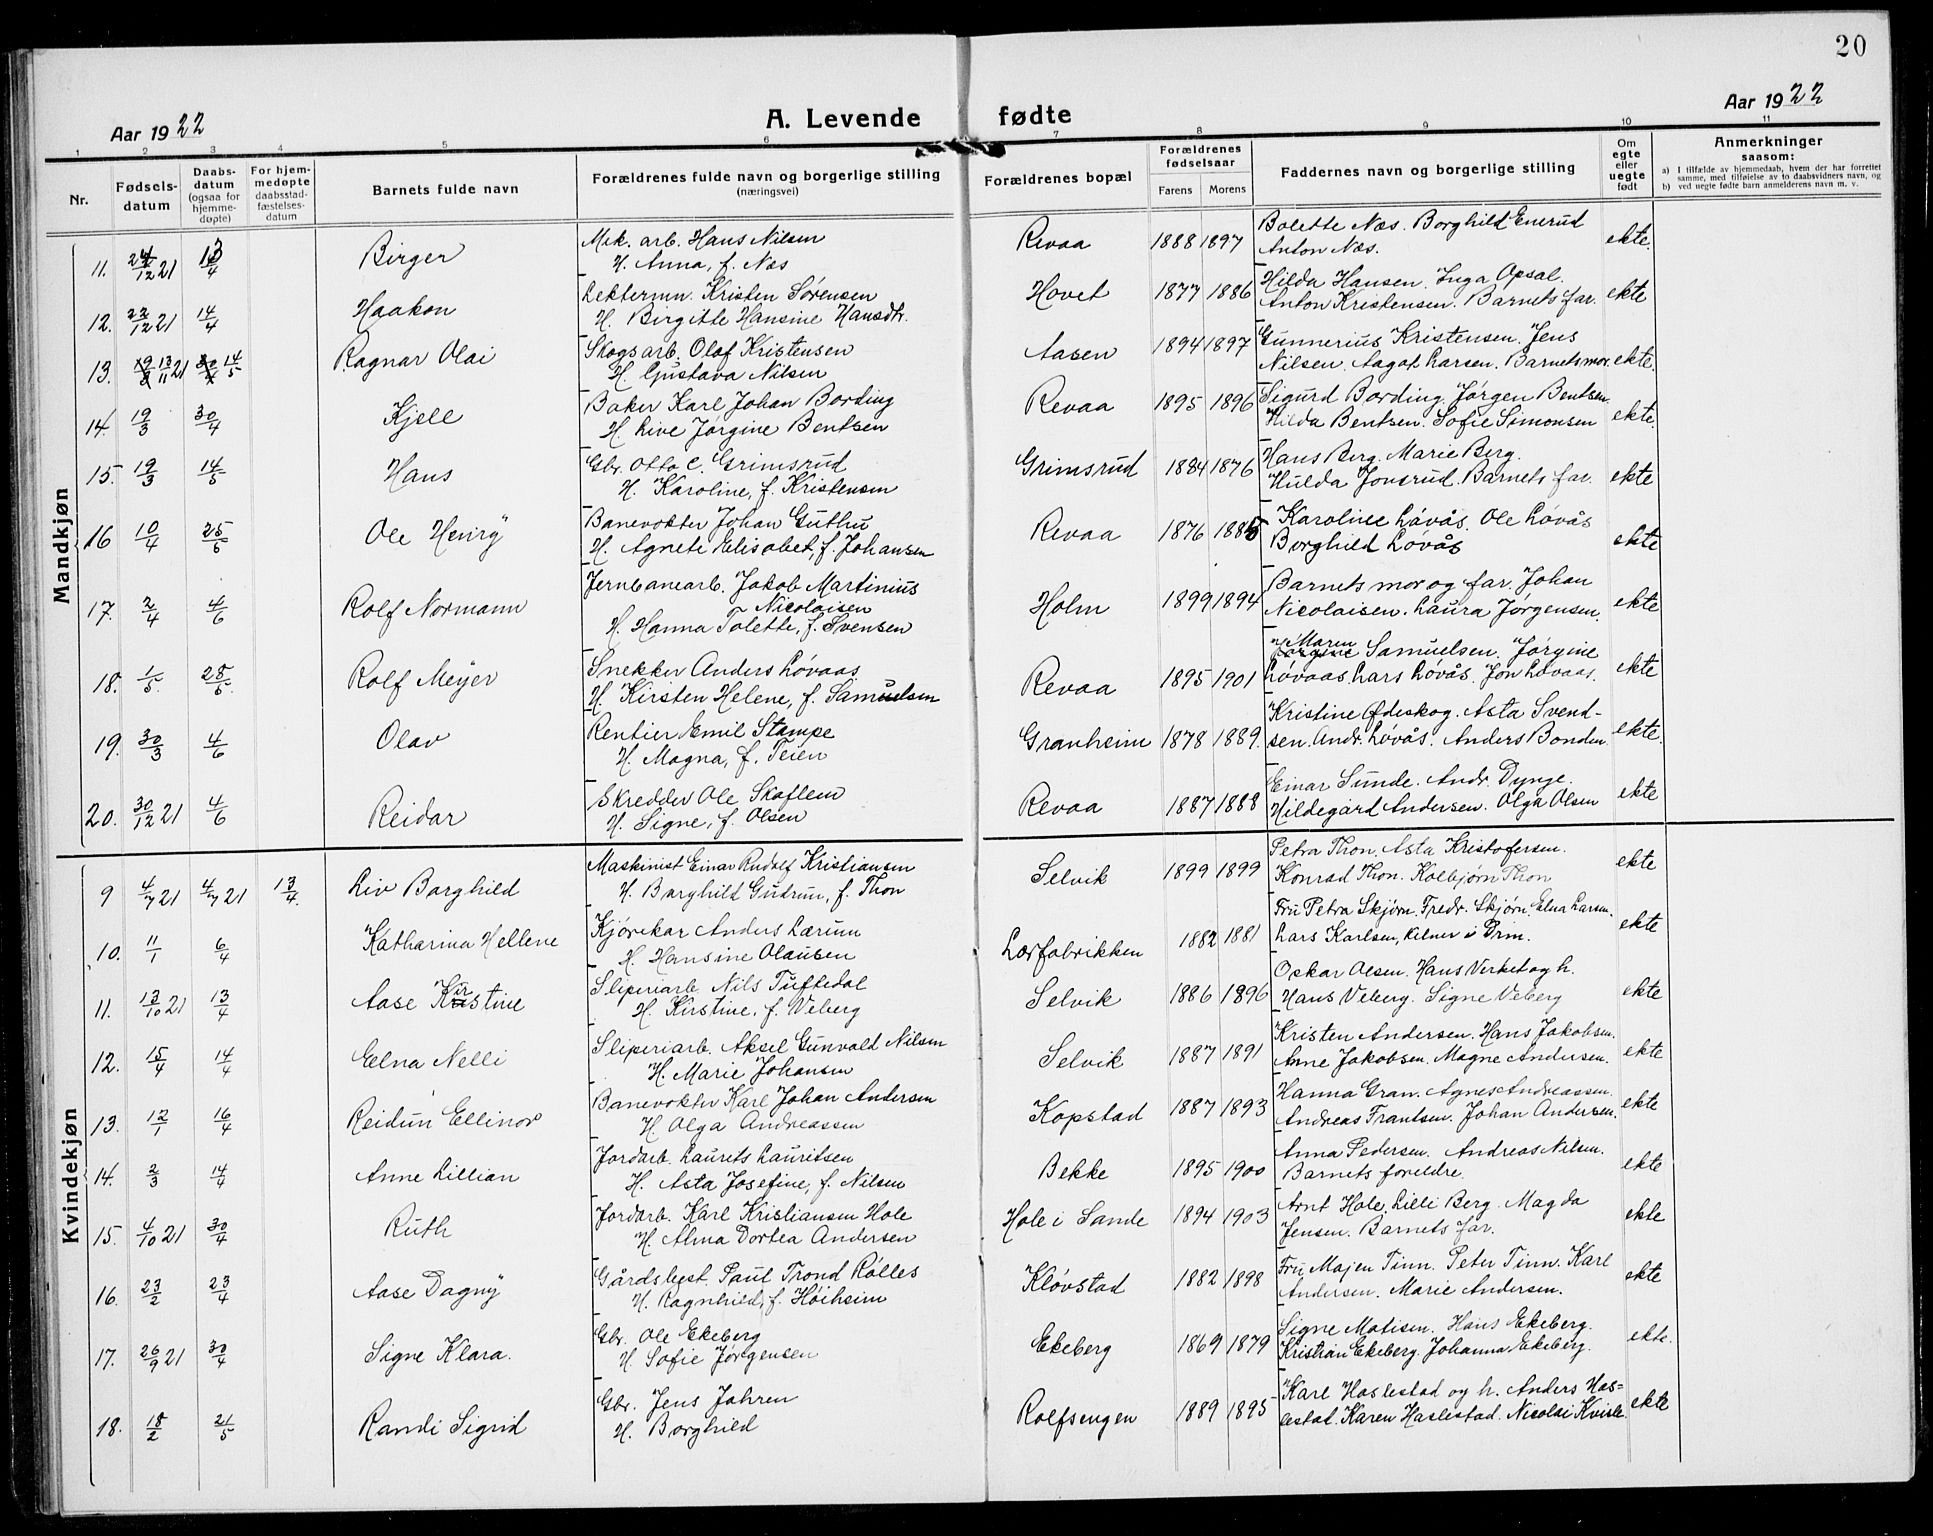 20
Aar 1922
A. Levende fødte
Aar 1922
1 2 3 4 5 6 7 8 9 10 11
Nr.
Fødsels-
datum
Daabs-
datum
(ogsaa for
hjemme-
døpte)
For hjem-
medøpte
daabsstad-
fæstelses-
datum
Barnets fulde navn
Forældrenes fulde navn og borgerlige stilling
(næringsvei)
Forældrenes bopæl
Forældrenes
fødselsaar
Farens Morens
Faddernes navn og borgerlige stilling
Om
egte
eller
uegte
født
Anmerkninger
saasom:
a) I tilfælde av hjemmedaab, hvem der har forrettet
samme, med tilføielse av to daabsvidners navn, og
b) ved uegte fødte barn anmelderens navn m. v.
Mandkjøn
11. 12 21 13/4 Birger Mek. arb. Hans Nilsen Revaa 1888 1897 Bolette Næs. Borghild Enerud ekte.
H. Anna, f. Næs Anton Næs.
12. 23/12 21 14/4 Haakon Lektermn. Kristen Sørensen Hovet 1877 1886 Hilda Hansen. Inga Opsal. ekte
H. Birgitte Hansine Hansdtr. Anton Kristensen. Barnets far.
13. 13/11 21 14/5 Ragnar Olai Skogsarb. Olaf Kristensen Aasen 1894 1897 Gunnerius Kristensen. Jens ekte.
H. Gustava Nilsen Nilsen. Aagot Larsen. Barnets mor.
14. 19/3 30/4 Kjell Baker Karl Johan Bording Revaa 1895 1896 Sigurd Bording. Jørgen Bentsen. ekte.
H. Live Jørgine Bentsen Hilda Bentsen. Sofie Simonsen
15. 19/3 14/5 Hans Gbr. Otto C. Grimsrud Grimsrud 1884 1876 Hans Berg. Marie Berg. ekte
H. Karoline, f. Kristensen Hulda Jonsrud. Barnets far.
16 10/4 25/5 Ole Henry Banevokter Johan Guthu Revaa 1876 1885 Karoline Løvås. Ole Løvås ekte
H. Agnete Elisabet, f. Johansen Borghild Løvås
17. 2/4 4/6 Rolf Normann Jernbanearb. Jakob Martinius Holm 1899 1894 Barnets mor og far. Johan ekte
Nicolaisen Nicolaisen. Laura Jørgensen.
H. Hanna Tolette, f. Svensen
18. 1/5 28/5 Rolf Meyer Snekker Anders Løvaas Revaa 1895 1901 Maren Samuelsen. Jørgine ekte
H. Kirsten Helene, f. Samuelsen Løvaas. Lars Løvås. Jon Løvaas.
19. 30/3 4/6 Olav Rentier Emil Stampe Granheim 1878 1889. Kristine Ødeskog. Asta Svend- ekte.
H. Magna, f. Teien sen. Andr. Løvås. Anders Bonden.
20. 30/12 21 4/6 Reidar Skredder Ole Skaflem Revaa 1887 1888 Einar Sunde. Andr. Dynge. ekte
H. Signe, f. Olsen Hildegård Andersen. Olga Olsen
Kvindekjøn
9 4/7 21 4/7 21 13/4. Liv Borghild Maskinist Einar Rudolf Kristiansen Selvik 1899 1899 Petra Thon. Asta Kristofersen. ekte
H. Borghild Gudrun, f. Thon Konrad Thon. Kolbjørn Thon
10. 11/1 6/4 Katharina Hellene Kjørekar Anders Lærum Lærfabrikken 1882 1881 Fru Petra Skjørn. Fredr. Skjørn. Elna Larsen. ekte
H. Hansine Olausen Lars Karlsen, Kelner i Drm.
11. 13/10 21 13/4 Aase Kirstine Sliperiarb. Nils Tuftedal Selvik 1886 1896 Oskar Olsen. Hans Verket og h. ekte
H. Kirstine, f. Veberg Hans Veberg. Signe Veberg
12. 15/4 14/4 Elna Nelli Sliperiarb. Aksel Gunvald Nilsen Selvik 1887 1891 Kristen Andersen. Hans Jakobsen. ekte
H. Marie Johansen Anne Jakobsen. Magne Andersen.
13. 12/1 16/4 Reidun Ellinor Banevokter Karl Johan Andersen Kopstad 1887 1893 Hanna Gran. Agnes Andreassen. ekte
H. Olga Andreassen Andreas Frantsen. Johan Andersen.
14. 2/3 14/4 Anne Lillian Jordarb. Laurets Lauritsen Bekke 1895 1900 Anna Pedersen. Andreas Nilsen. ekte
H. Asta Josefine, f. Nilsen Barnets foreldre.
15. 4/10 21 30/4 Ruth Jordarb. Karl Kristiansen Hole Hole i Sande 1894 1903 Arnt Hole. Lilli Berg. Magda ekte
H. Alma Dortea Andersen Jensen. Barnets far.
16. 23/2 23/4 Aase Dagny Gårdsbest. Paul Trond Rølles Kløvstad 1882 1898 Fru Majen Tinn. Peter Tinn. Karl ekte
H. Ragnhild, f. Høiheim Andersen. Marie Andersen.
17. 26/9 21 30/4 Signe Klara. Gbr. Ole Ekeberg Ekeberg 1869 1879 Signe Matisen. Hans Ekeberg. ekte.
H. Sofie Jørgensen Kristian Ekeberg. Johanna Ekeberg.
18. 18/2 21/5 Randi Sigrid Gbr. Jens Jahren Rolfsengen 1889 1895 Karl Haslestad og h. Anders Has= ekte
H. Borghild lestad. Karen Haslestad. Nicolai Kvisle.